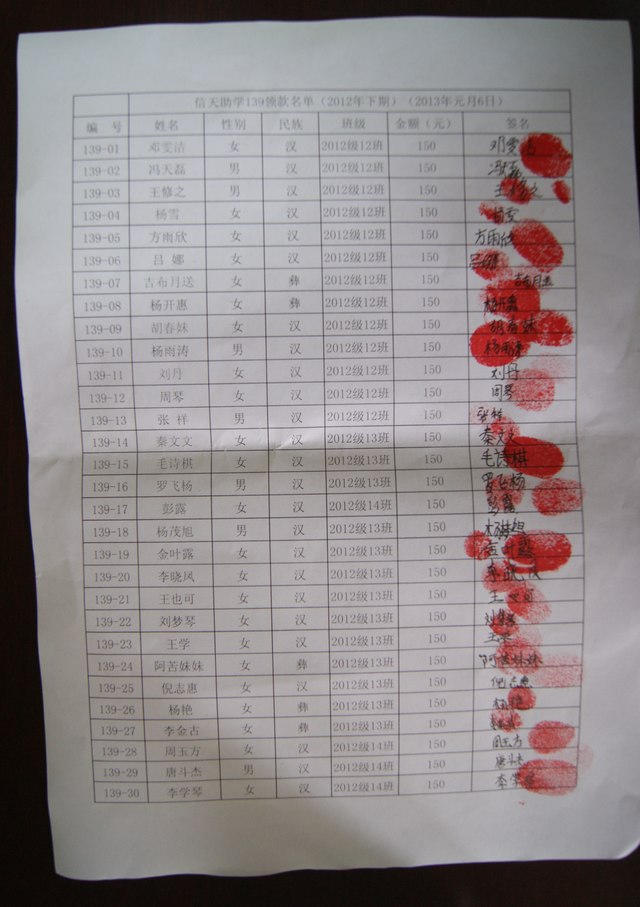 信天助学139领款名单（2012年下期）（2013年元月6日）
编 号 姓名 性别 民族 班级 金额（元） 签名
139-01 邓雯洁 女 汉 2012级12班 150 邓雯洁
139-02 冯天磊 男 汉 2012级12班 150
139-03 王修之 男 汉 2012级12班 150 王修之
139-04 杨雪 女 汉 2012级12班 150
139-05 方雨欣 女 汉 2012级12班 150 方雨欣
139-06 吕 娜 女 汉 2012级12班 150 吕娜
139-07 吉布月送 女 彝 2012级12班 150 吉布月送
139-08 杨开惠 女 彝 2012级12班 150 杨开惠
139-09 胡春妹 女 汉 2012级12班 150 胡春妹
139-10 杨雨涛 男 汉 2012级12班 150 杨雨涛
139-11 刘丹 女 汉 2012级12班 150 刘丹
139-12 周琴 女 汉 2012级12班 150 周琴
139-13 张 祥 男 汉 2012级12班 150 张祥
139-14 秦文文 女 汉 2012级13班 150 秦文文
139-15 毛诗棋 女 汉 2012级13班 150 毛诗棋
139-16 罗飞杨 男 汉 2012级13班 150 罗飞杨
139-17 彭露 女 汉 2012级14班 150 彭露
139-18 杨茂旭 男 汉 2012级13班 150
139-19 金叶露 女 汉 2012级13班 150 金叶露
139-20 李晓凤 女 汉 2012级13班 150 李晓凤
139-21 王也可 女 汉 2012级13班 150 王也可
139-22 刘梦琴 女 汉 2012级13班 150 刘梦琴
139-23 王学 女 汉 2012级13班 150 王学
139-24 阿苦妹妹 女 彝 2012级13班 150 阿苦妹妹
139-25 倪志惠 女 汉 2012级13班 150 倪志惠
139-26 杨艳 女 彝 2012级13班 150 杨艳
139-27 李金古 女 彝 2012级13班 150
139-28 周玉方 女 汉 2012级14班 150 周玉方
139-29 唐斗杰 男 汉 2012级14班 150 唐斗杰
139-30 李学琴 女 汉 2012级14班 150 李学琴